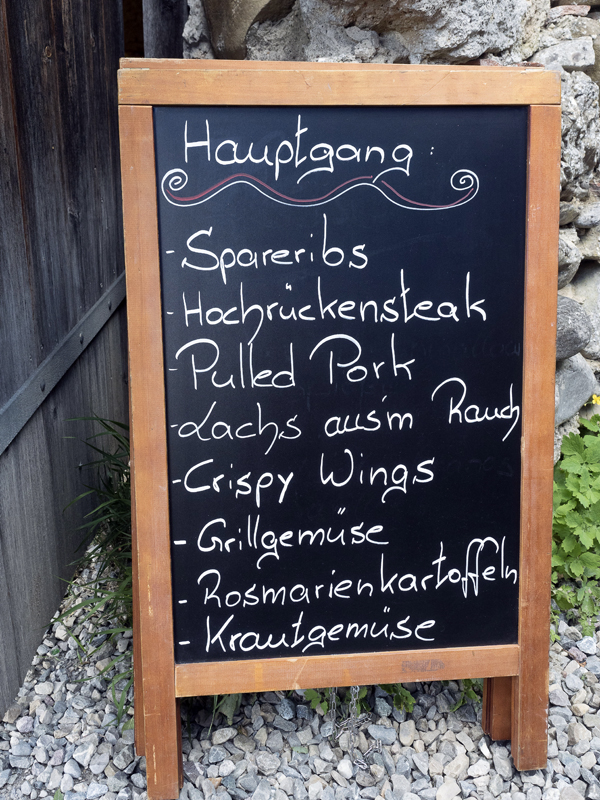 Hauptgang :
- Spareribs
- Hochrückensteak
- Pulled Pork
- Lachs aus'm Rauch
- Crispy Wings
- Grillgemüse
- Rosmarienkartoffeln
- Krautgemüse